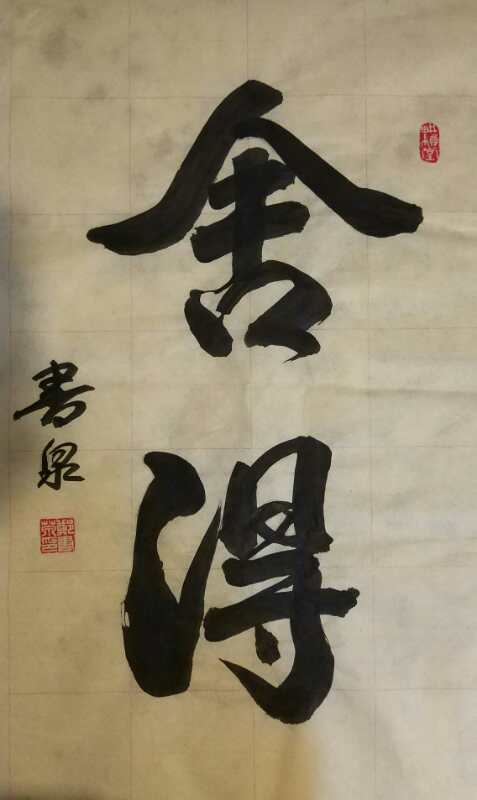 舍得
書泉